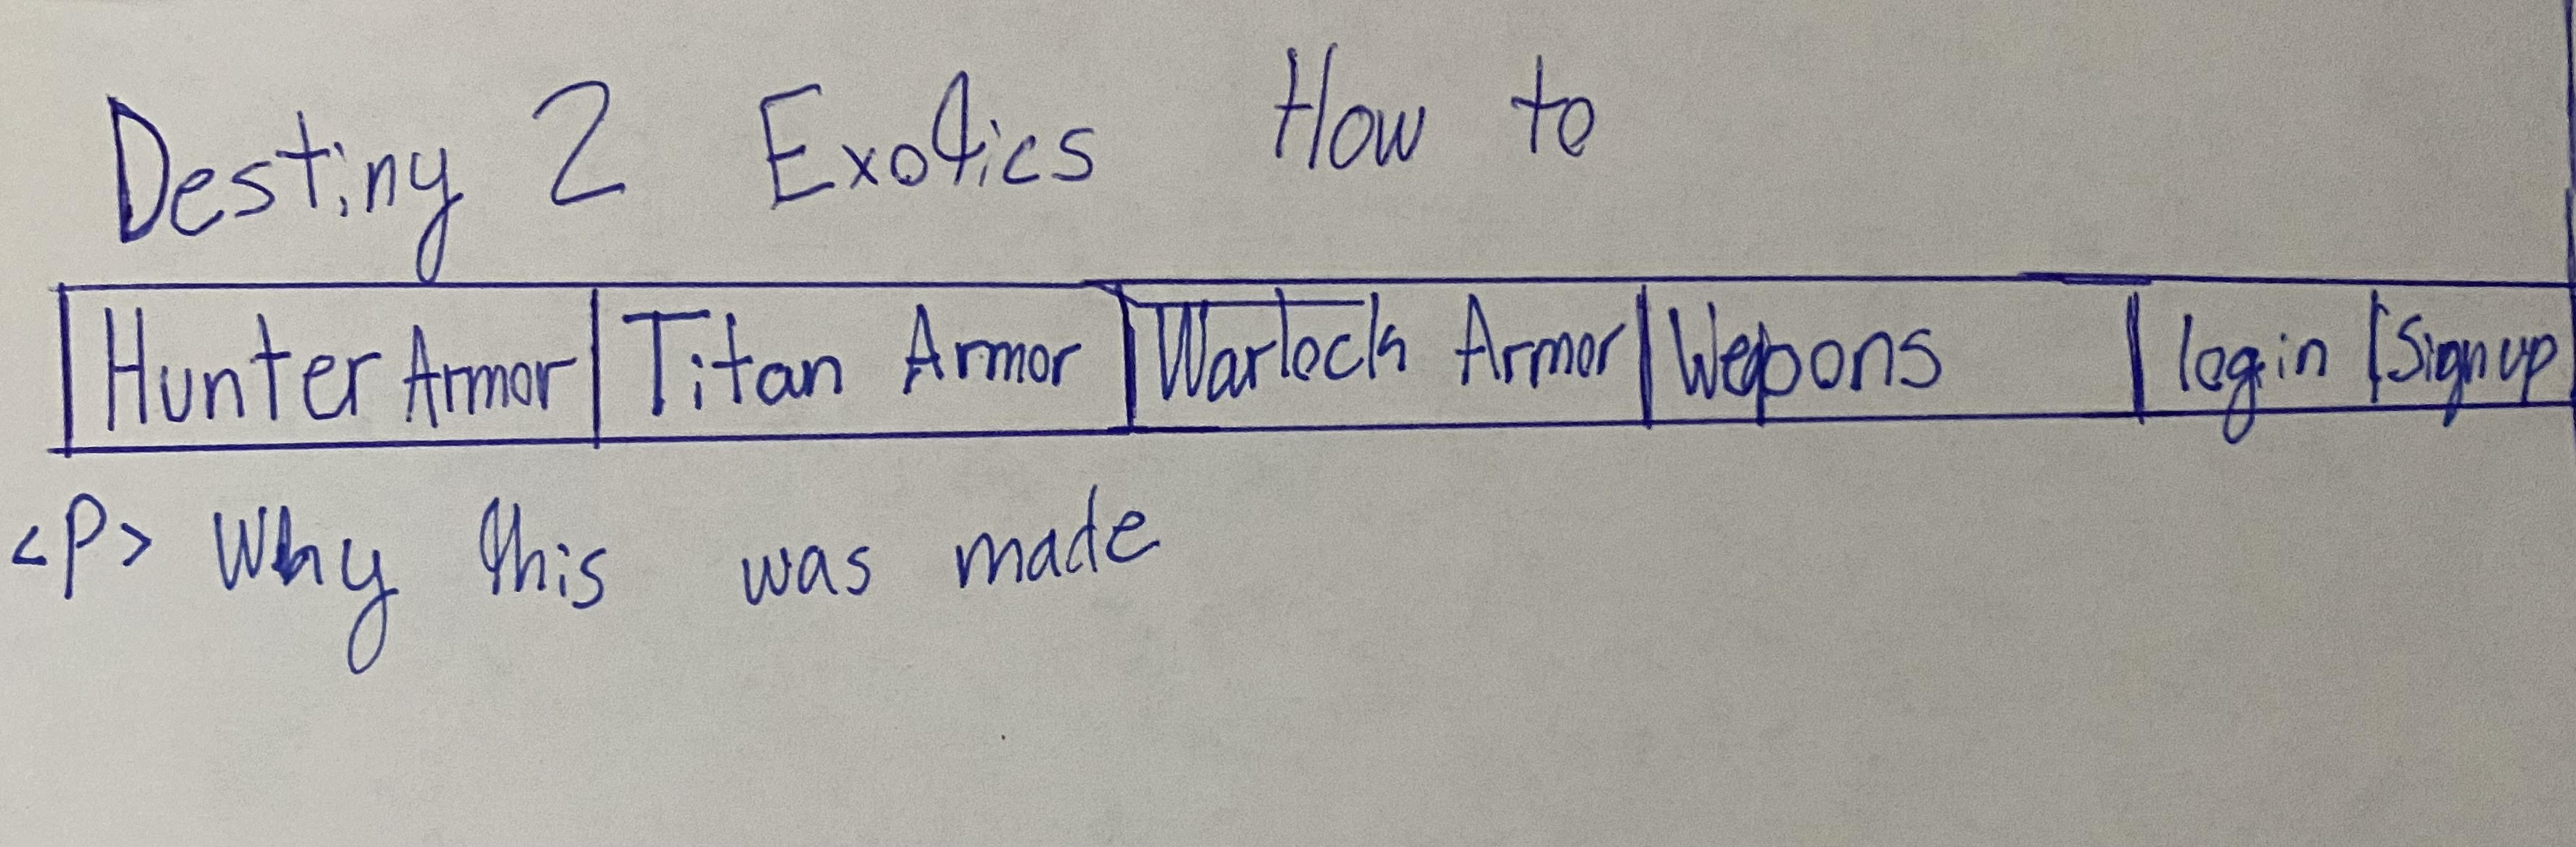 Destiny 2 Exotics How to
Hunter Armor Titan Armor Warlock Armor Wepons login Sign up
<P> Why this was made